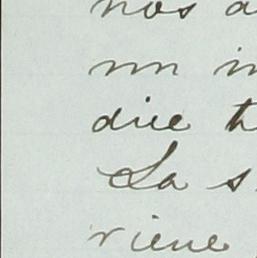 nos a
un i
dice t
La s
viene